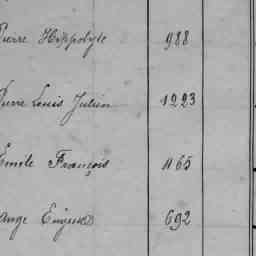 Pierre Hippolyte 988
Pierre Louis Julien 1223
Emile François 1165
Ange Eugène 692